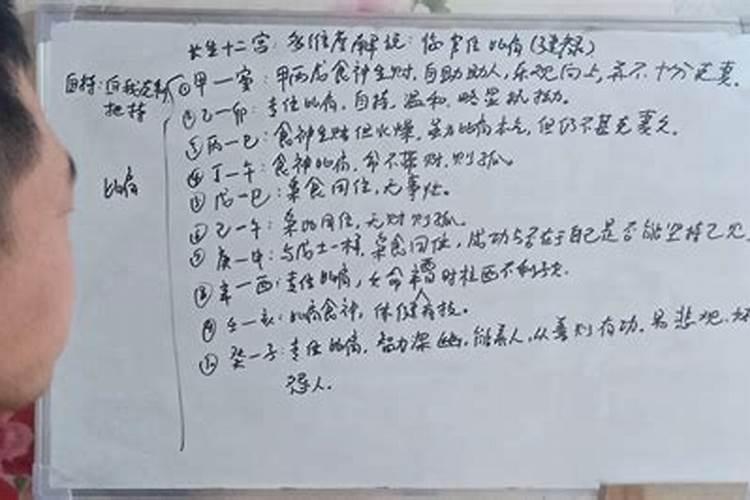 长生十二宫:多维度解说:临官位 比肩(建禄)
自持:自我克制
把持
①甲一寅:甲丙戊食神生财,自助助人,乐观向上,
②乙一卯:专位比肩,自持,温和,略显
③丙一巳:食神生财但火燥,比肩本气,但仍不甚
④丁一午:食神比肩,命不财,则孤。
⑤戊一巳:枭食同位,无事忙。
比肩
⑥己一午:枭比同位,无财则孤。
⑦庚一申:与戊土一样,枭食同位,成功与否在于自己是否能坚持
⑧辛一酉:专位比肩,女命时柱酉不利子
⑨壬一亥:比肩食神,体健有技。
⑩癸一子:专位比肩,智力深幽,能养人,从善则有功,易悲观,
强人.